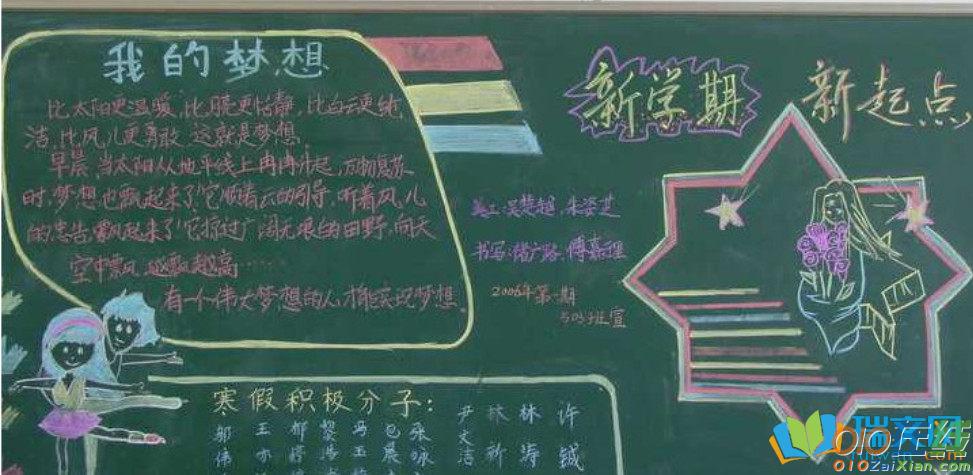 我的梦想
比太阳更温暖,比月亮更恬静,比白云更纯
洁,比风儿更勇敢,这就是梦想.
早晨,当太阳从地平线上冉冉升起,万物复苏
时,梦想也飘起来了!它顺着云的引导,听着风儿
的忠告,飘起来了!它掠过广阔无垠的田野,向天
空中飘,越飘越高……
有一个伟大梦想的人,才能实现梦想.
新学期 新起点
美工:吴楚越、朱姿芝
书写:储广路、傅嘉理
2006年第一期
503班宣
寒假积极分子:
尹文洁 林新 林涛 许铖
邬伟 王亦 郁婷 黎浩 马玉 包晨 张咏
010在线
010zaiXian.com